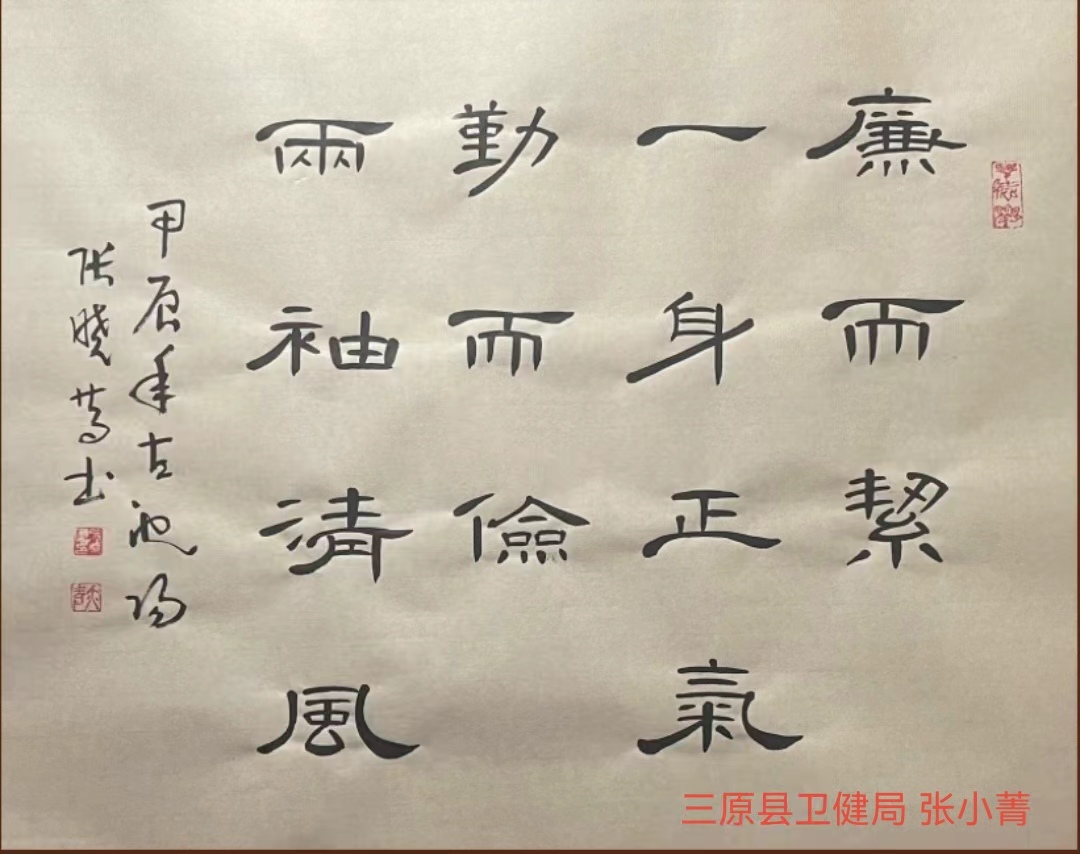 廉而絜
一身正氣
勤而儉
兩袖清風
甲辰年古池陽
张晓菁书
三原县卫健局 张小菁